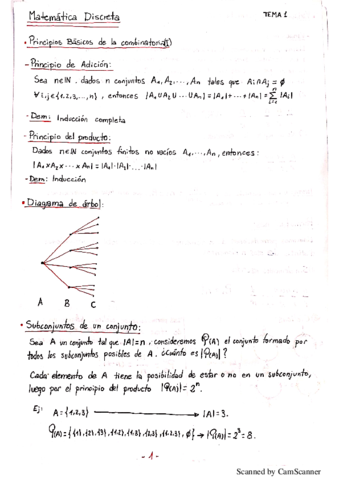 Matemática Discreta
TEMA 1
• Principios Básicos de la combinatoria(I)
- Principio de Adición:
Sea n∈ℕ, dados n conjuntos A₁, A₂, ..., Aₙ tales que Aᵢ∩Aⱼ = ∅
∀ i,j∈{1,2,3,...,n}, entonces |A₁∪A₂∪...∪Aₙ| = |A₁|+...+|Aₙ| = ∑|Aᵢ|
- Dem: Inducción completa
- Principio del producto:
Dados n∈ℕ conjuntos finitos no vacíos A₁,...,Aₙ, entonces:
|A₁×A₂×...×Aₙ| = |A₁|·|A₂|·...·|Aₙ|
- Dem: Inducción
• Diagrama de árbol:
A B C
• Subconjuntos de un conjunto:
Sea A un conjunto tal que |A|=n, consideremos P(A) el conjunto formado por
todos los subconjuntos posibles de A. ¿Cuánto es |P(A)|?
Cada elemento de A tiene la posibilidad de estar o no en un subconjunto,
luego por el principio del producto |P(A)| = 2ⁿ.
Ej: A = {1,2,3} → |A| = 3.
P(A) = {{1},{2},{3},{1,2},{1,3},{2,3},{1,2,3},∅} → |P(A)| = 2³ = 8.
- 1 -
Scanned by CamScanner